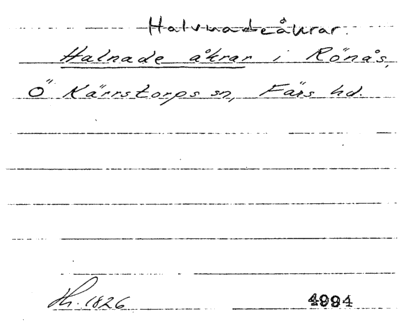 Halvnadeåkrar.
Halnade åkrar i Rönås,
Ö Kärrstorps sn, Färs hd.
Hh. 1826 4994